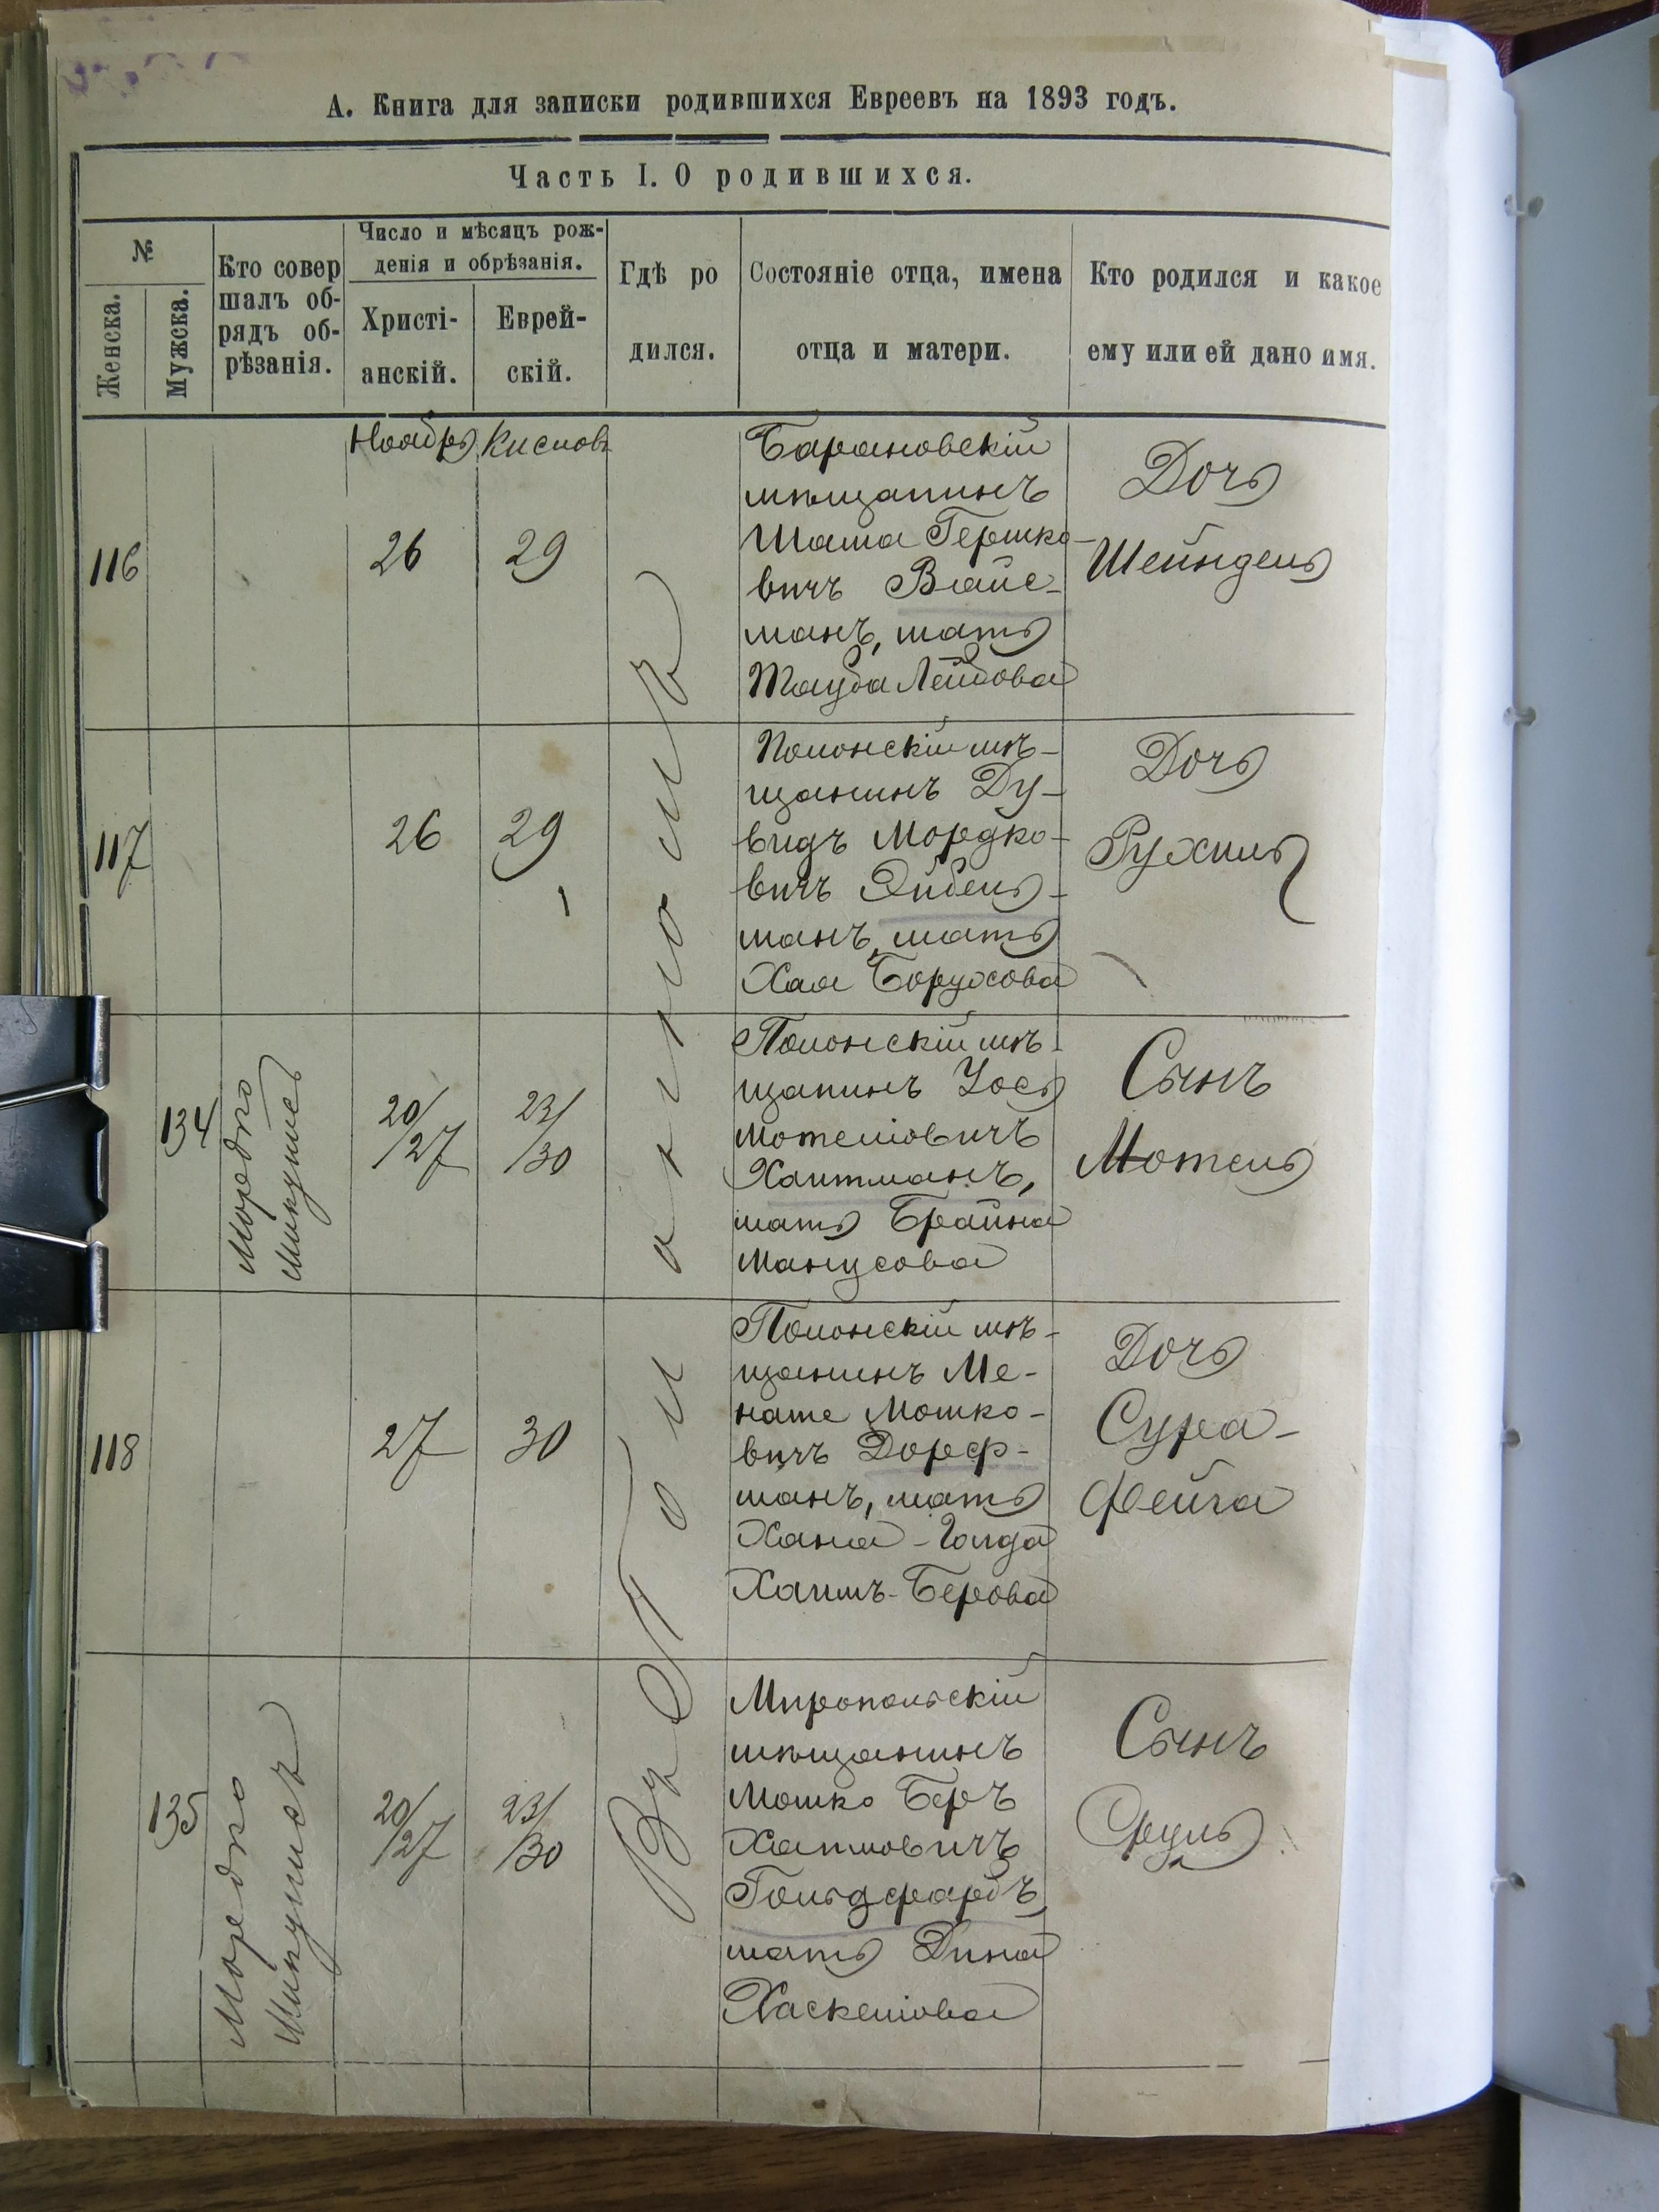 А. Книга для записки родившихся Евреевъ на 1893 годъ.
Часть I. О родившихся.
№
Женска.
Мужска.
Кто совер
шалъ об-
рядъ об-
рѣзанія.
Число и мѣсяцъ рож-
денія и обрѣзанія.
Христі-
анскій.
Еврей-
скій.
Гдѣ ро
дился.
Состояніе отца, имена
отца и матери.
Кто родился и какое
ему или ей дано имя.
Ноябрь
Кислевъ
116
26
29
Барановскій
мѣщанинъ
Шама Гершко-
вичъ Вайс-
манъ, мать
Тауба Лейбова
Дочь
Шейндель
117
26
29
Полонскій мѣ-
щанинъ Ду-
видъ Мордко-
вичъ Эйбель-
манъ, мать
Хая Борухова
Дочь
Рухль
134
Мордко
20/
/27
23/
/30
Полонскій мѣ-
щанинъ Уось
Мотеліовичъ
Хаитманъ,
мать Брайна
Манусова
Сынъ
Мотель
118
27
30
Полонскій мѣ-
щанинъ Ме-
наше Мошко-
вичъ Дорф-
манъ, мать
Хана-Голда
Хаимъ-Берова
Дочь
Сура-
Фейга
135
Мордко
20/
/27
23/
/30
Миропольскій
мѣщанинъ
Мошко Беръ
Хаимовичъ
Гольдфарбъ,
мать Дина
Хаскеліова
Сынъ
Сруль
Въ
Полонномъ